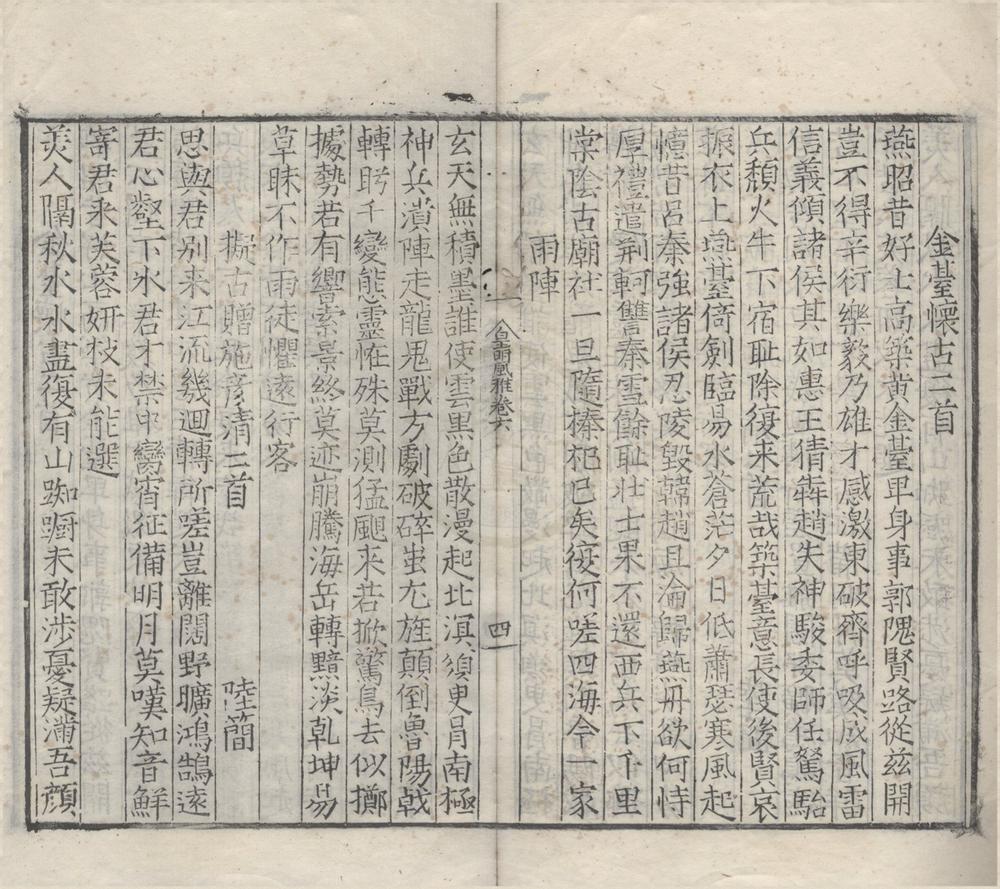 金臺懷古二首
燕昭昔好士高築黃金臺卑身事郭隗賢路從茲開
豈不得辛衍樂毅乃雄才感激東破齊呼吸成風雷
信義傾諸侯其如惠王猜犇趙失神駿委師任駑駘
兵頹火牛下宿耻除復来荒哉築臺意長使後賢哀
振衣上燕臺倚劍臨易水蒼茫夕日低蕭瑟寒風起
憶昔呂秦強諸侯忍陵毀韓趙且淪歸燕丹欲何恃
厚禮遣荆軻讐秦雪餘耻壯士果不還西兵下千里
棠陰古廟社一旦隨榛杞已矣復何嗟四海今一家
雨陣
皇明風雅卷六
四
玄天無積墨誰使雲黑色散漫起北溟須臾冐南極
神兵潰陣走龍鬼戰方劇破碎蚩尤旌顛倒魯陽戟
轉眄千變態靈怪殊莫測猛颷来若掀驚鳥去似擲
據勢若有響索景終莫迹崩騰海岳轉黯淡乾坤易
草昧不作雨徒懼遠行客
擬古贈施彦清二首 陸簡
思與君别来江流幾迴轉所嗟豈離闊野曠鴻鵠遠
君心壑下氷君才禁中臠宵征備明月莫嘆知音鮮
寄君采芙蓉妍枝未能選
美人隔秋水水盡復有山踟蹰未敢涉憂疑滿吾顔